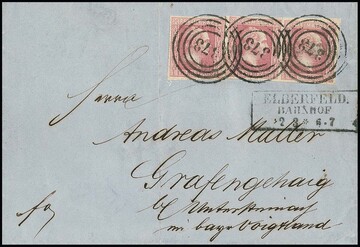 373 373 373
ELBERFELD.
BAHNHOF
2 8 * 6-7
Herrn
Andreas Müller
Grafengehaig
fro
im bayr Voigtland